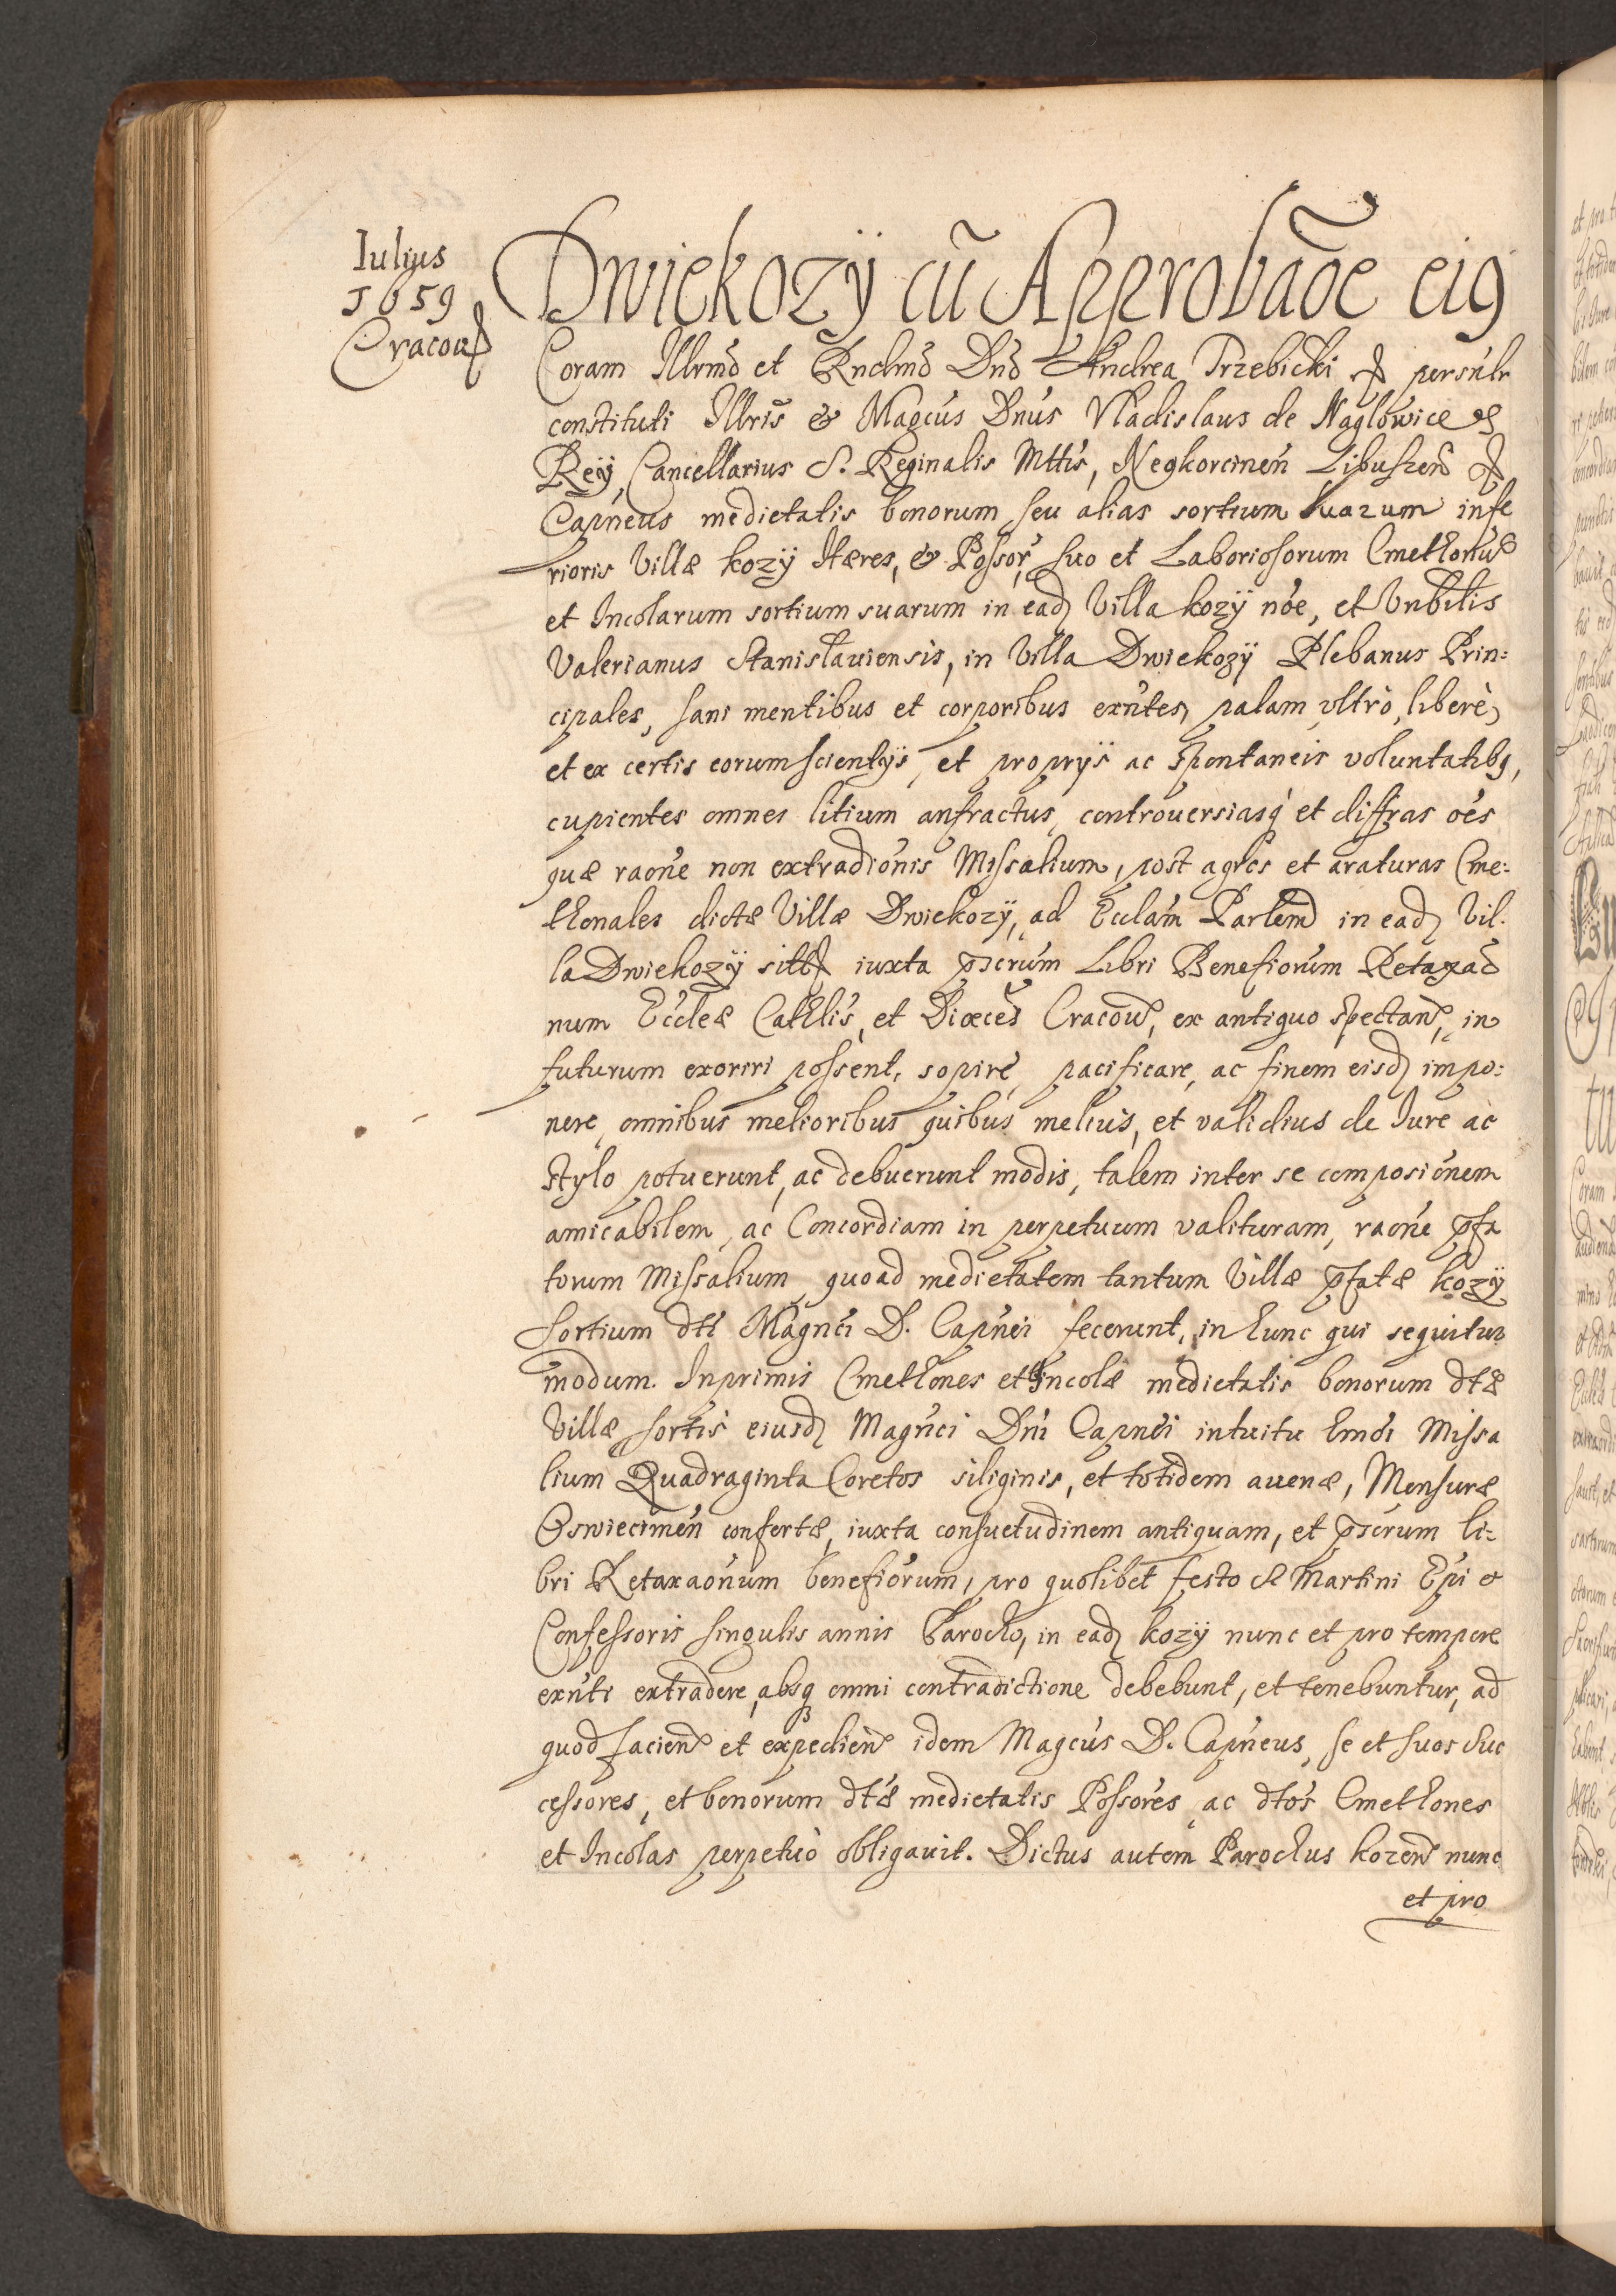 Iulius
1659
Cracou
Dwiekozÿ cũ Approbãõe eig
Coram Illrmo et Rndmo Dno Andrea Trzebicki persnlr
constituti Illris & Magcus Dnus Vladislaus de Naglowice
Reÿ, Cancellarius S. Reginalis Mttis, Neokorcinen Libuszen
Capneus medietatis bonorum seu alias sortium suarum infe
rioris Villæ kozÿ Hæres, & Possor, suo et Laboriosorum Cmethonu
et Incolarum sortium suarum in ead Villa kozÿ noe, et Vnbilis
Valerianus Stanislauiensis, in Villa Dwiekozÿ Plebanus Prin:
cipales, sani mentibus et corporibus exntes, palam vltrò, liberè,
et ex certis eorum scientÿs, et proprÿs ac spontaneis voluntatibg,
cupientes omnes litium anfractus, controuersiasq et diffras oes
quæ raone non extradionis Missalium, post agros et araturas Cme:
thonales dictæ Villæ Dwiekozÿ, ad Ecclam Parlem in ead Vil
la Dwiekozÿ sitt iuxta pscrum Libri Benefiorum Retaxao
num Eccleæ Cathlis, et Dioeces Cracou, ex antiquo spectan, in
futurum exoriri possent, sopire, pacificare, ac finem eisd impo:
nere, omnibus melioribus quibus melius, et validius de Iure ac
stylo potuerunt, ac debuerunt modis, talem inter se composionem
amicabilem, ac Concordiam in perpetuum valituram, raone pfa
torum Missalium quoad medietatem tantum Villæ pfatæ kozÿ
Sortium dti Magnci D. Capnei fecerunt, in hunc qui sequitur
modum. Inprimis Cmethones et Incolæ medietatis bonorum dtæ
Villæ sortis eiusd Magnci Dni Capnei intuitu hmoi Missa
lium Quadraginta Coretos siliginis, et totidem auenæ, Mensuræ
Oswiecimen confertæ, iuxta consuetudinem antiquam, et pscrum li:
bri Retaxaonum benefiorum, pro quolibet festo S Martini Epi &
Confessoris singulis annis Parocho, in ead kozÿ nunc et pro tempore
exnti extradere, absq omni contradictione debebunt, et tenebuntur, ad
quod facien et expedien idem Magcus D. Capneus, se et suos Suc
cessores, et bonorum dtæ medietatis Possores, ac dtos Cmethones
et Incolas perpetuò obligauit. Dictus autem Parochus kozen nunc
et pro